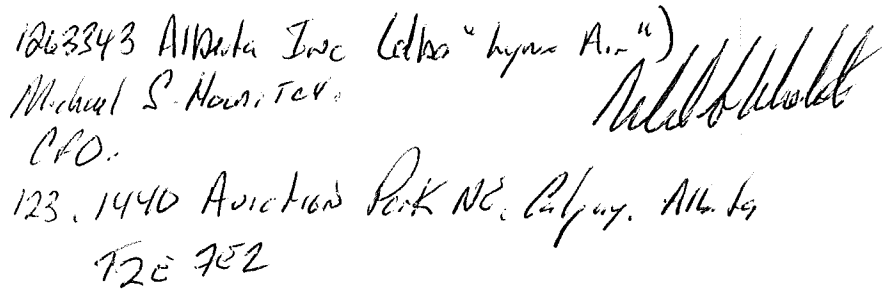 1263343 Alberta Inc (dba "Lynx Air")
Michael S.
CFO.
123, 1440 Aviation Park NE, Calgary, Alberta
T2E 7E2